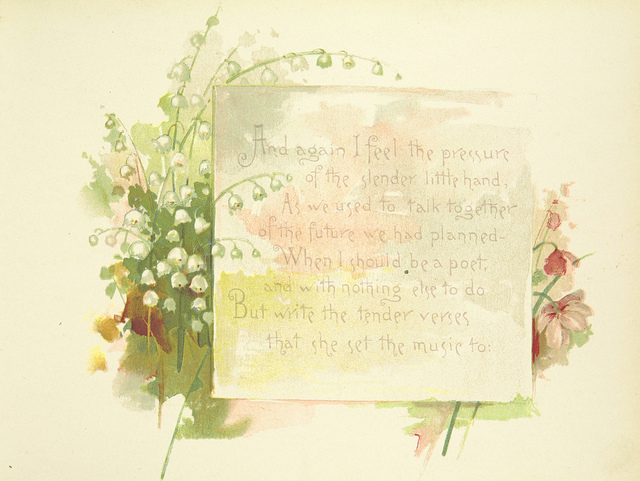 And again I feel the pressure
of the slender little hand,
As we used to talk together
of the future we had planned-
When I should be a poet,
and with nothing else to do
But write the tender verses
that she set the music to: